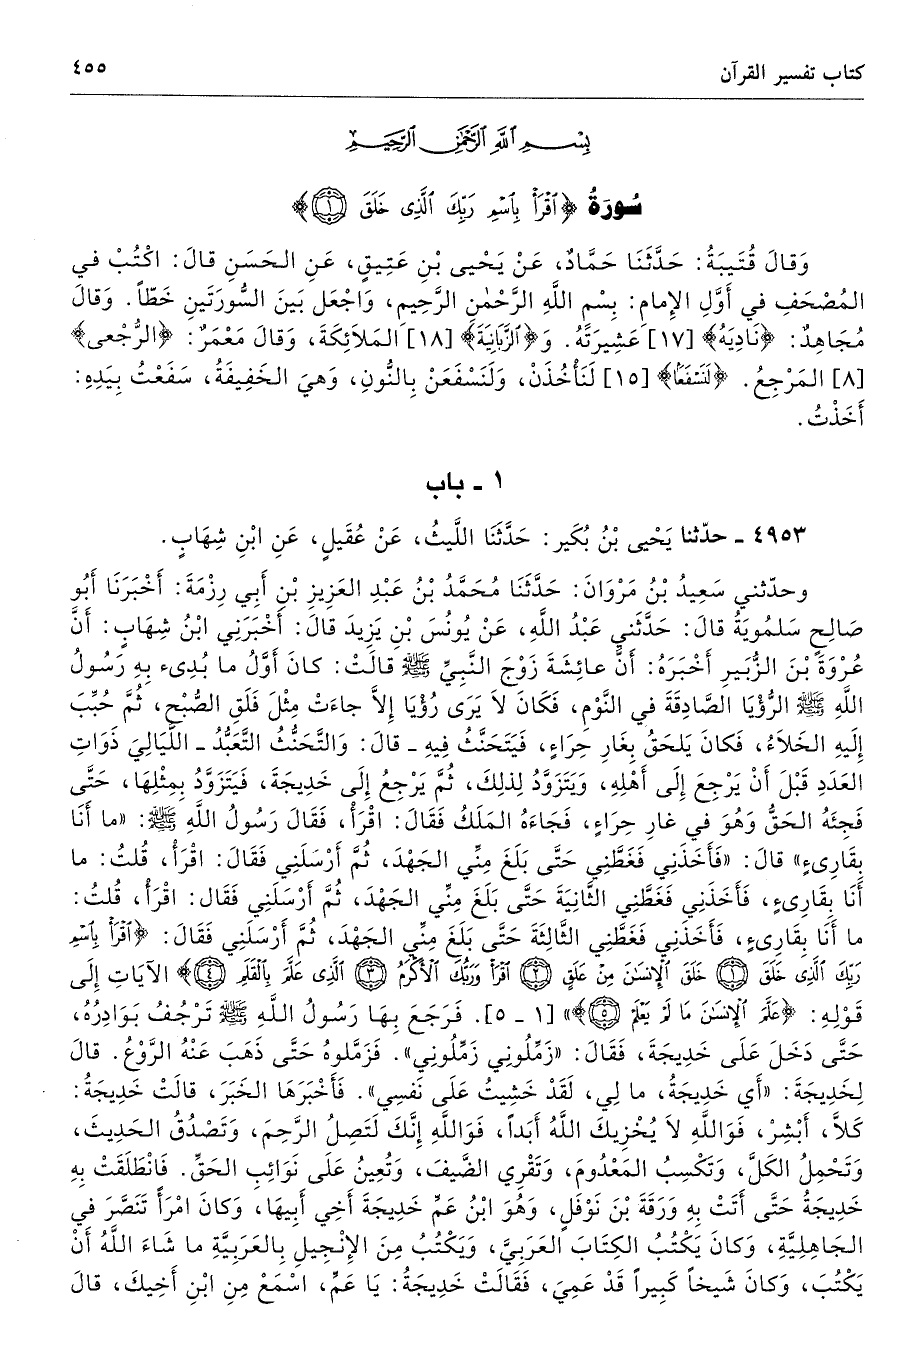 كتاب تفسير القرآن ٤٥٥
بِسْمِ ٱللَّهِ ٱلرَّحْمَٰنِ ٱلرَّحِيمِ
سُورَةُ ﴿ٱقْرَأْ بِٱسْمِ رَبِّكَ ٱلَّذِى خَلَقَ ١﴾
وَقالَ قُتَيبَةُ: حَدَّثَنَا حَمَّادٌ، عَنْ يَحْيى بْنِ عَتِيقٍ، عَنِ الحَسَنِ قالَ: اكْتُبْ في
المُصْحَفِ في أَوَّلِ الإِمامِ: بِسْمِ اللَّهِ الرَّحْمٰنِ الرَّحِيمِ، وَاجْعَل بَينَ السُّورَتَينِ خَطّاً. وَقالَ
مُجَاهِدٌ: ﴿نَادِيَهُ﴾ [١٧] عَشِيرَتَهُ. وَ﴿ٱلزَّبَانِيَةَ﴾ [١٨] المَلاَئِكَةَ، وَقالَ مَعْمَرٌ: ﴿الرُّجْعى﴾
[٨] المَرْجِعُ. ﴿لَنَسْفَعًا﴾ [١٥] لَنَأْخُذَنْ، وَلَنَسْفَعَنْ بِالنُّونِ، وَهيَ الخَفِيفَةُ، سَفَعْتُ بِيَدِهِ:
أَخَذْتُ.
١ - باب
٤٩٥٣ - حدّثنا يَحْيى بْنُ بُكَيرٍ: حَدَّثَنَا اللَّيثُ، عَنْ عُقَيلٍ، عَنِ ابْنِ شِهَابٍ.
وحدّثني سَعِيدُ بْنُ مَرْوَانَ: حَدَّثَنَا مُحَمَّدُ بْنُ عَبْدِ العَزِيزِ بْنِ أَبِي رِزْمَةَ: أَخْبَرَنَا أَبُو
صَالِحٍ سَلمُويَةُ قالَ: حَدَّثَني عَبْدُ اللَّهِ، عَنْ يُونُسَ بْنِ يَزِيدَ قالَ: أَخْبَرَنِي ابْنُ شِهَابٍ: أَنَّ
عُرْوَةَ بْنَ الزُّبَيرِ أَخْبَرَهُ: أَنَّ عائِشَةَ زَوْجَ النَّبِيِّ ﷺ قالَتْ: كانَ أَوَّلُ ما بُدِىءَ بِهِ رَسُولُ
اللَّهِ ﷺ الرُّؤْيَا الصَّادِقَةَ في النَّوْمِ، فَكَانَ لاَ يَرَى رُؤْيَا إِلاَّ جاءَتْ مِثْلَ فَلَقِ الصُّبْحِ، ثُمَّ حُبِّبَ
إِلَيهِ الخَلاَءُ، فَكانَ يَلحَقُ بِغَارِ حِرَاءٍ، فَيَتَحَنَّثُ فِيهِ - قالَ: وَالتَّحَنُّثُ التَّعَبُّدُ - اللَّيَالِيَ ذَوَاتِ
العَدَدِ قَبْلَ أَنْ يَرْجِعَ إِلَى أَهْلِهِ، وَيَتَزَوَّدُ لِذلِكَ، ثُمَّ يَرْجِعُ إِلَى خَدِيجَةَ، فَيَتَزَوَّدُ بِمِثْلِهَا، حَتَّى
فَجِئَهُ الحَقُّ وَهُوَ في غارِ حِرَاءٍ، فَجَاءَهُ المَلَكُ فَقَالَ: اقْرَأْ، فَقَالَ رَسُولُ اللَّهِ ﷺ: «ما أَنَا
بِقَارِىءٍ» قالَ: «فَأَخَذَنِي فَغَطَّنِي حَتَّى بَلَغَ مِنِّي الجَهْدَ، ثُمَّ أَرْسَلَنِي فَقَالَ: اقْرَأْ، قُلتُ: ما
أَنَا بِقَارِىءٍ، فَأَخَذَنِي فَغَطَّنِي الثَّانِيَةَ حَتَّى بَلَغَ مِنِّي الجَهْدَ، ثُمَّ أَرْسَلَنِي فَقَال: اقْرَأْ، قُلتُ:
ما أَنا بِقَارِىءٍ، فَأَخَذَنِي فَغَطَّنِي الثَّالِثَةَ حَتَّى بَلَغَ مِنِّي الجَهْدَ، ثُمَّ أَرْسَلَنِي فَقَالَ: ﴿ٱقْرَأْ بِٱسْمِ
رَبِّكَ ٱلَّذِى خَلَقَ ١ خَلَقَ ٱلْإِنسَٰنَ مِنْ عَلَقٍ ٢ ٱقْرَأْ وَرَبُّكَ ٱلْأَكْرَمُ ٣ ٱلَّذِى عَلَّمَ بِٱلْقَلَمِ ٤﴾ الآيَاتِ إِلَى
قَوْلِهِ: ﴿عَلَّمَ ٱلْإِنسَٰنَ مَا لَمْ يَعْلَمْ ٥﴾» [١ - ٥]. فَرَجَعَ بِهَا رَسُولُ اللَّهِ ﷺ تَرْجُفُ بَوَادِرُهُ،
حَتَّى دَخَلَ عَلَى خَدِيجَةَ، فَقَالَ: «زَمِّلُونِي زَمِّلُونِي». فَزَمَّلوهُ حَتَّى ذَهَبَ عَنْهُ الرَّوْعُ. قالَ
لِخَدِيجَةَ: «أَي خَدِيجَةُ، ما لِي، لَقَدْ خَشِيتُ عَلَى نَفسِي». فَأَخْبَرَهَا الخَبَرَ، قالَتْ خَدِيجَةُ:
كَلاَّ، أَبْشِرْ، فَوَاللَّهِ لاَ يُخْزِيكَ اللَّهُ أَبَداً، فَوَاللَّهِ إِنَّكَ لَتَصِلُ الرَّحِمَ، وَتَصْدُقُ الحَدِيثَ،
وَتَحْمِلُ الكَلَّ، وَتَكْسِبُ المَعْدُومَ، وَتَقْرِي الضَّيفَ، وَتُعِينُ عَلَى نَوَائِبِ الحَقِّ. فَانْطَلَقَتْ بِهِ
خَدِيجَةُ حَتَّى أَتَتْ بِهِ وَرَقَةَ بْنَ نَوْفَلٍ، وَهُوَ ابْنُ عَمِّ خَدِيجَةَ أَخِي أَبِيهَا، وَكانَ امْرَأً تَنَصَّرَ في
الجَاهِلِيَّةِ، وَكانَ يَكْتُبُ الكِتَابَ العَرَبِيَّ، وَيَكْتُبُ مِنَ الإِنْجِيلِ بِالعَرَبِيَّةِ ما شَاءَ اللَّهُ أَنْ
يَكْتُبَ، وَكانَ شَيخاً كَبِيراً قَدْ عَمِيَ، فَقَالَتْ خَدِيجَةُ: يَا عَمِّ، اسْمَعْ مِنِ ابْنِ أَخِيكَ، قالَ